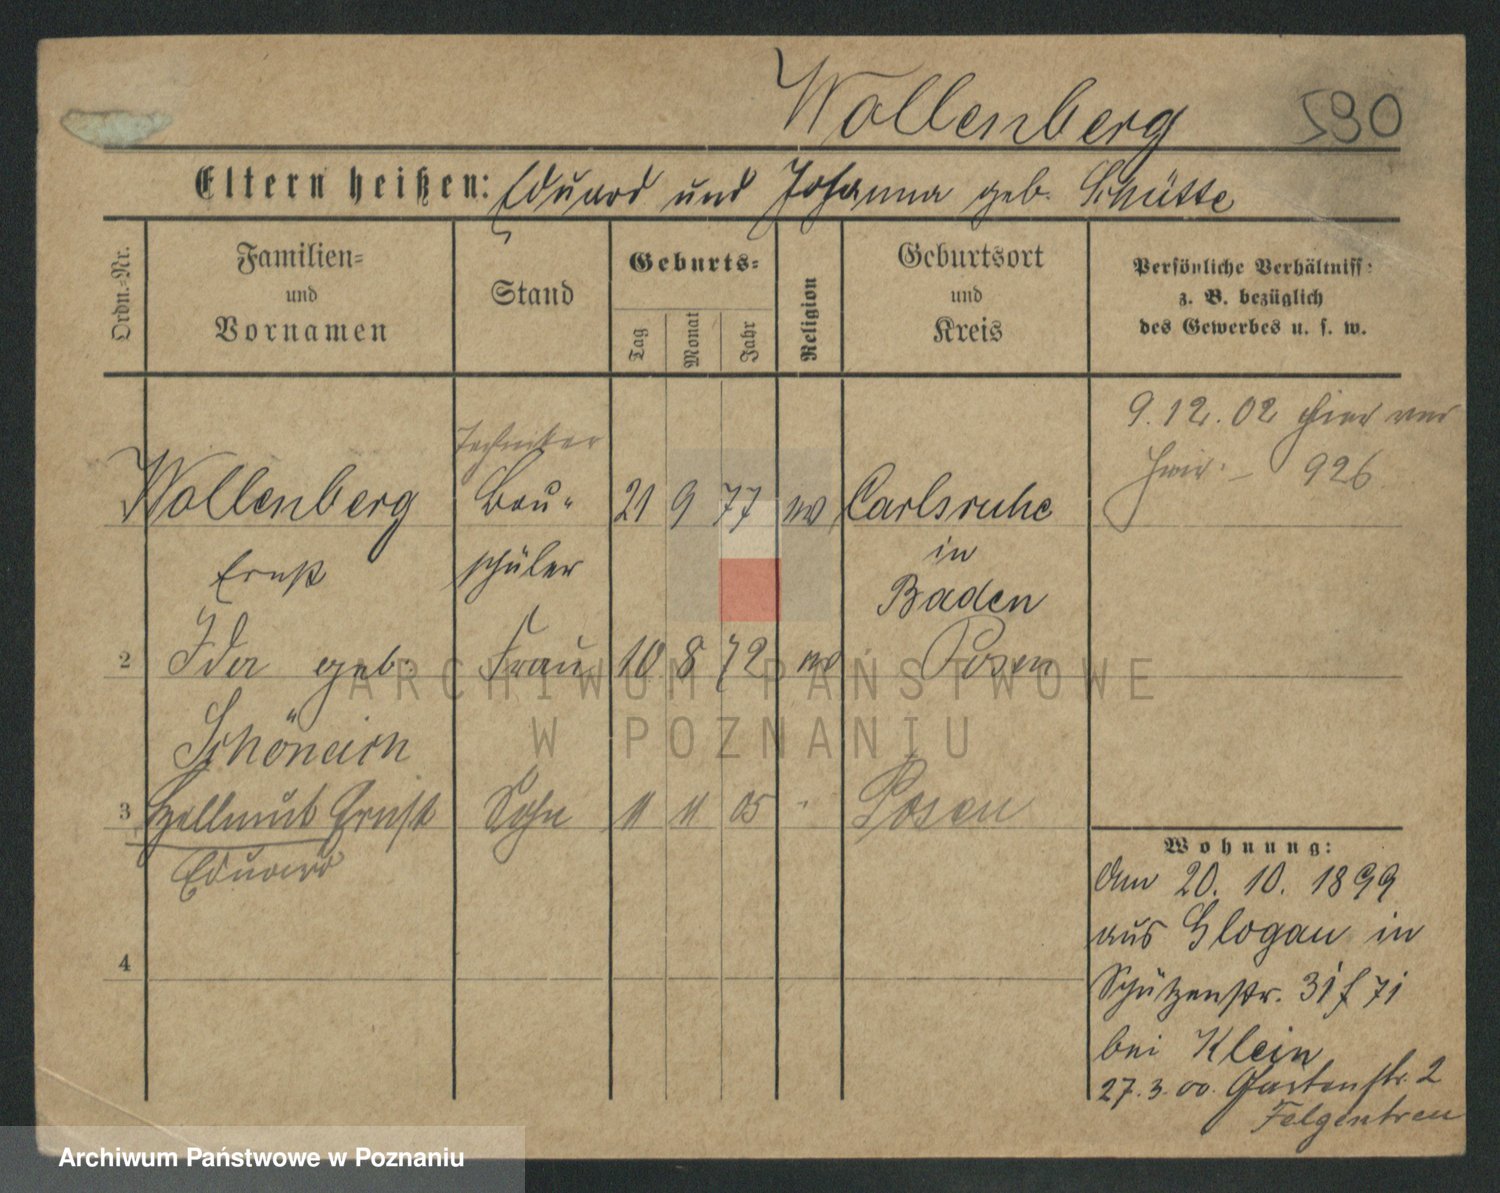 Wollenberg 590
Eltern heißen: Eduard und Johanna geb. Schütte
Ordn.-Nr.
Familien-
und
Vornamen
Stand
Geburts-
Tag
Monat
Jahr
Religion
Geburtsort
und
Kreis
Persönliche Verhältniss-
z. B. bezüglich
des Gewerbes u. s. w.
Techniker
Wollenberg Bau- 21 9 77 ev Carlsruhe
Ernst schüler in
Baden
2 Ida geb. Frau 10 8 72 ev Posen
3 Hellmut Ernst Sohn 11 11 05 " Posen
Eduard
4
9.12.02 hier
926
Wohnung:
Am 20. 10. 1899
aus Glogau in
Schützenstr. 31
bei Klein
27.3.00. Gartenstr. 2
Felgentreu
ARCHIWUM PAŃSTWOWE
W POZNANIU
Archiwum Państwowe w Poznaniu